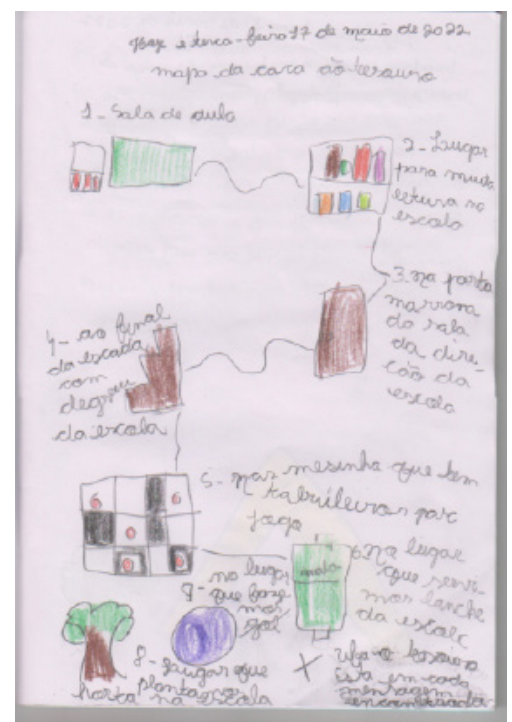 Hoje é terca-feira 17 de maio de 2022
mapa da caca ão tesouro
1- Sala de aula
2- Lugar
para muita
leitura na
escola
3- na porta
marrom
da sala
da dire-
cão da
escola
4- ao final
da escada
com
degrau
da escola
5- nas mesinha que tem
tabuleiros par
jogo
6- na lugar
que servi-
mos lanche
da escola
mata
no lugar
que faze
mos
gol
8- Lugar que
plantas
horta na escola
X
o tesouro
Esta em cada
mensagem
encontrada